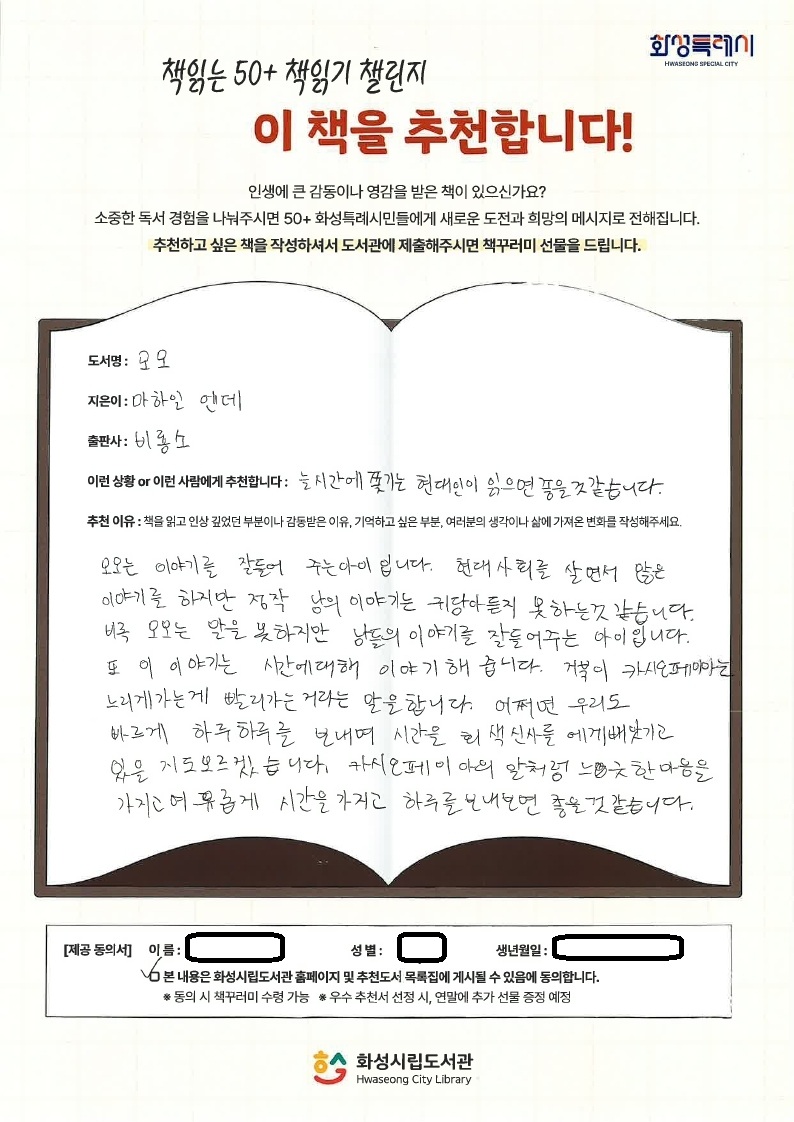 화성특례시
HWASEONG SPECIAL CITY
책읽는 50+ 책읽기 챌린지
이 책을 추천합니다!
인생에 큰 감동이나 영감을 받은 책이 있으신가요?
소중한 독서 경험을 나눠주시면 50+ 화성특례시민들에게 새로운 도전과 희망의 메시지로 전해집니다.
추천하고 싶은 책을 작성하셔서 도서관에 제출해주시면 책꾸러미 선물을 드립니다.
도서명 : 모모
지은이 : 마하일 엔데
출판사 : 비룡소
이런 상황 or 이런 사람에게 추천합니다 : 늘시간에 쫓기는 현대인이 읽으면 좋을것같습니다.
추천 이유 : 책을 읽고 인상 깊었던 부분이나 감동받은 이유, 기억하고 싶은 부분, 여러분의 생각이나 삶에 가져온 변화를 작성해주세요.
모모는 이야기를 잘들어 주는아이 입니다. 현대사회를 살면서 많은
이야기를 하지만 정작 남의 이야기는 귀담아듣지 못하는것 같습니다.
비록 모모는 말을 못하지만 남들의 이야기를 잘들어주는 아이입니다.
또 이 이야기는 시간에대해 이야기해 줍니다. 거북이 카시오페이아는
느리게가는게 빨리가는거라는 말을합니다. 어쩌면 우리도
바쁘게 하루하루를 보내며 시간을 회색신사들에게빼앗기고
있을 지도모르겠습니다. 카시오페이아의 말처럼 느긋한마음을
가지고여유롭게 시간을가지고 하루를보내보면 좋을것같습니다.
[제공 동의서] 이 름 : 성 별 : 생년월일 :
본 내용은 화성시립도서관 홈페이지 및 추천도서 목록집에 게시될 수 있음에 동의합니다.
※ 동의 시 책꾸러미 수령 가능 ※ 우수 추천서 선정 시, 연말에 추가 선물 증정 예정
화성시립도서관
Hwaseong City Library